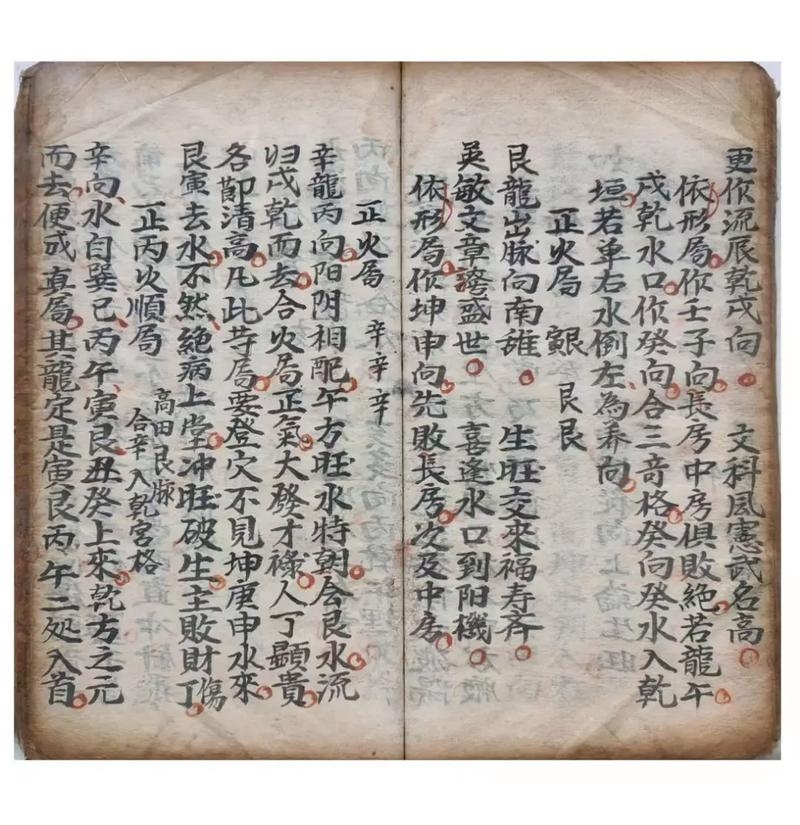 更作流辰乾戌向 文科風憲武名高
依形局作壬子向長房中房俱敗絶若龍午
戌乾水口作癸向合三奇格癸向癸水入乾
垣若单右水倒左為养向
正火局 艮艮
艮龍出脉向南離 生旺交來福寿齐
英敏文章盛世 喜逢水口到阳機
依形局作坤申向先敗長房次及中房
正火局 辛辛辛
辛龍丙向阳阴相配午方旺水特朝会艮水流
归戌乾而去合火局正氣大發才禄人丁顯貴
名即清高凡此等局要登穴不見坤庚申水來
艮寅去水不然絶病上堂冲旺破生主敗財傷丁
正丙火順局 高田艮脉
合辛入乾宮格
辛向水自巽巳丙午寅艮丑癸上來乾方之元
而去便成真局其龍定是寅艮丙午二处入首